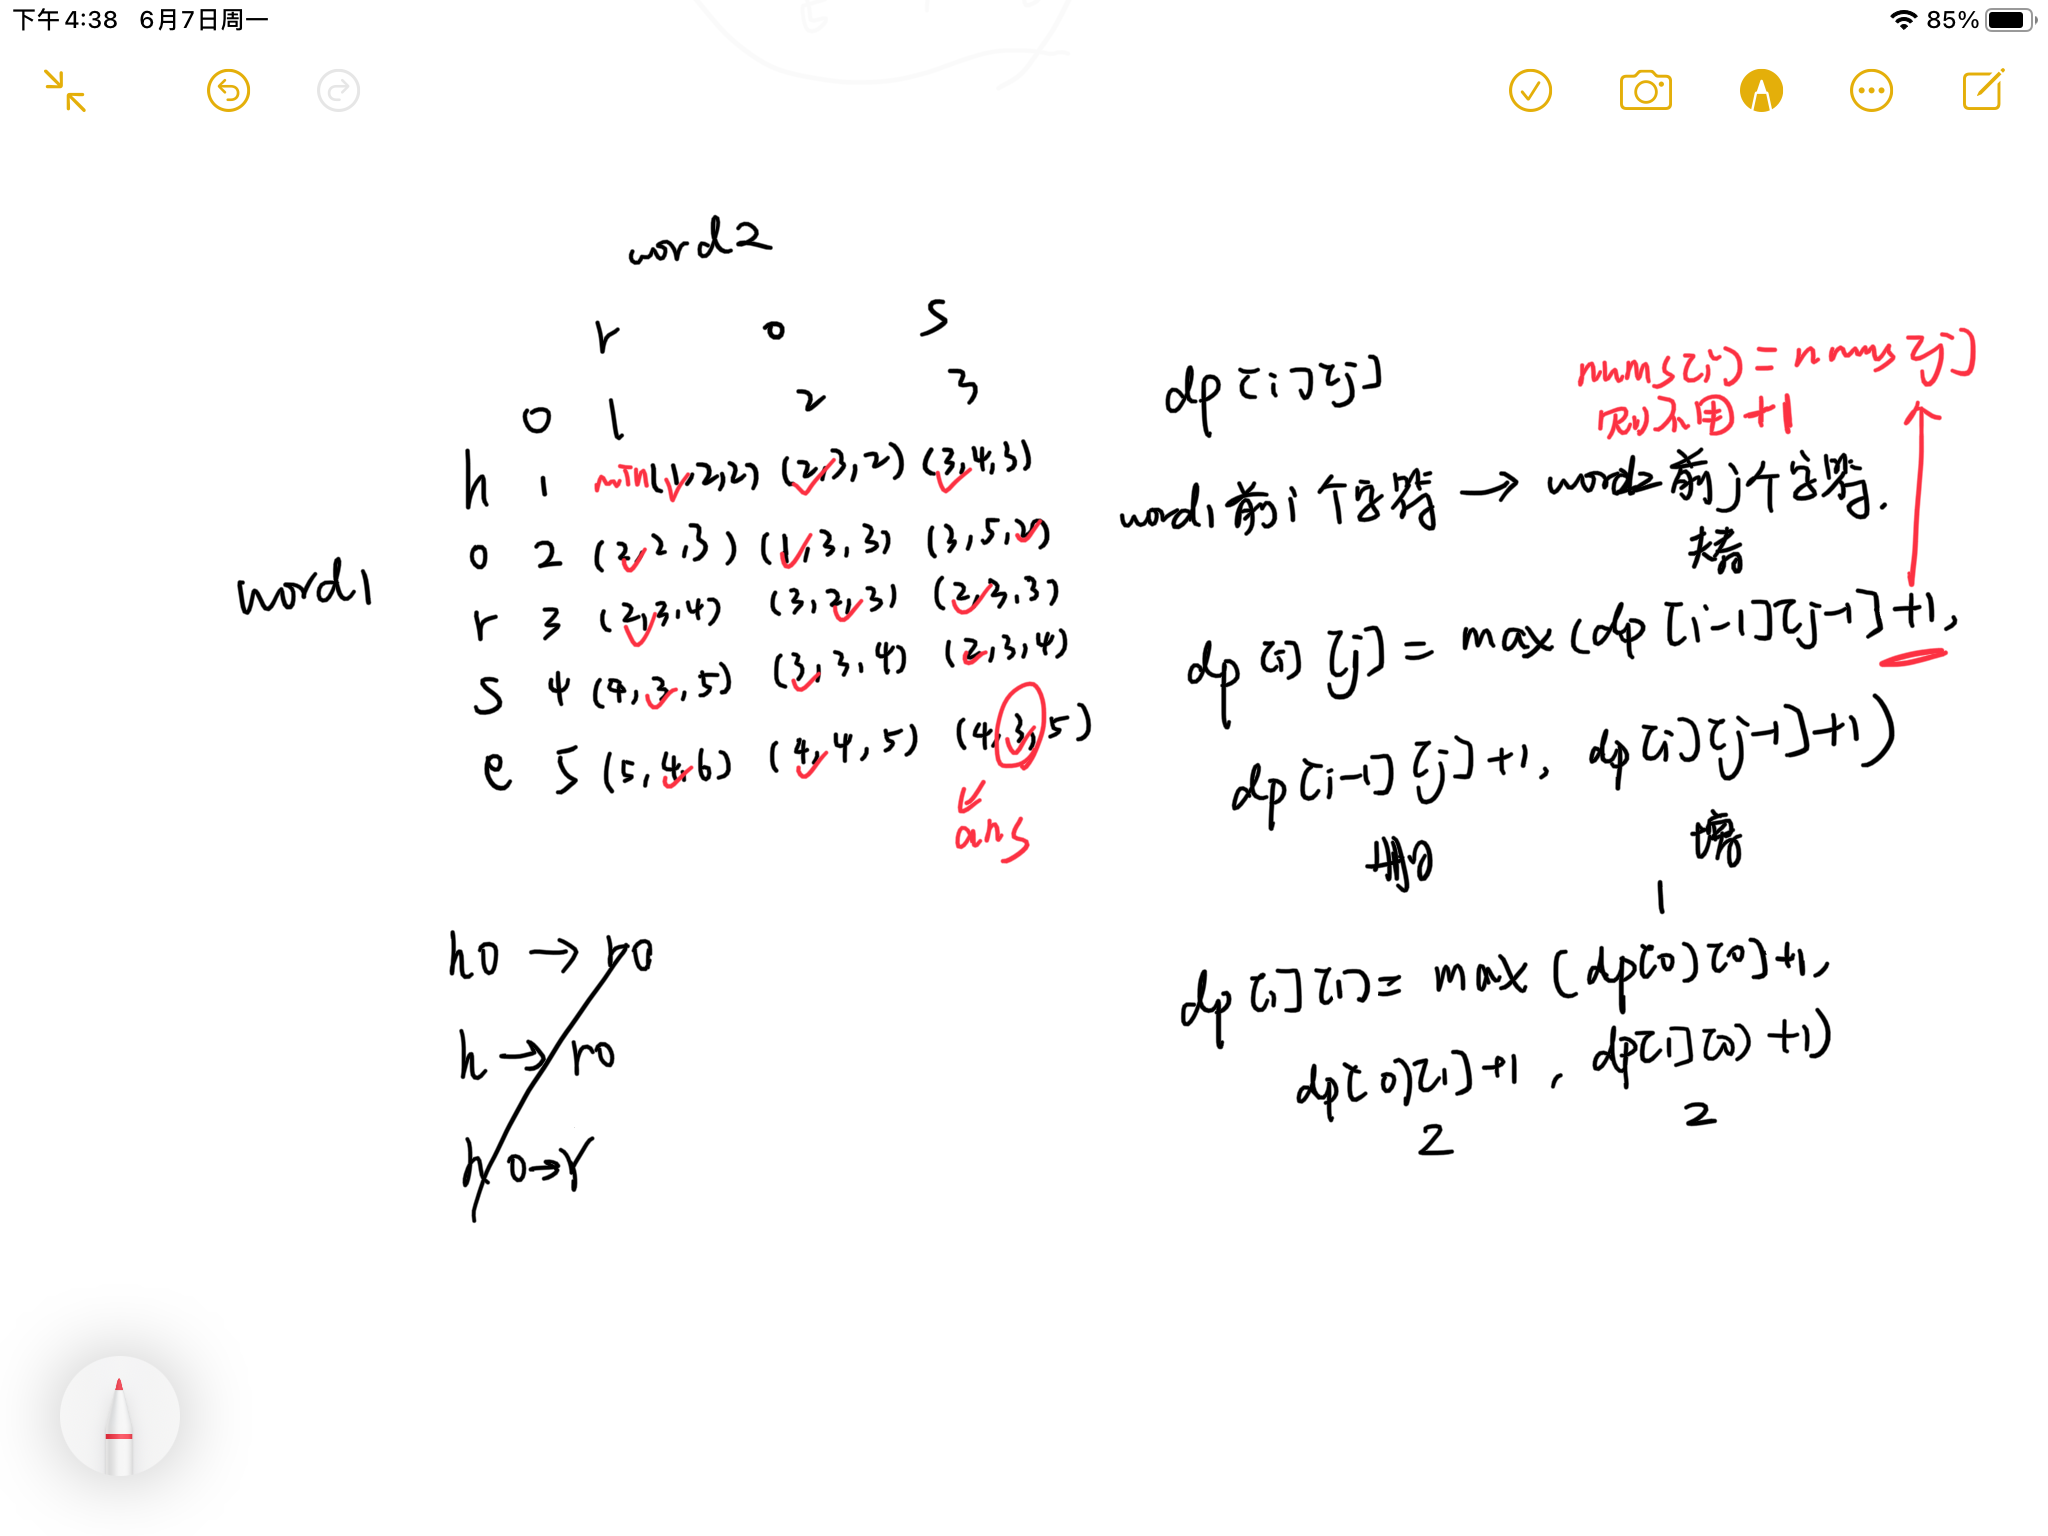 下午4:38 6月7日周一
85%
word2
r o s
0 1 2 3
h 1 min(1,2,2) (2,3,2) (3,4,3)
o 2 (2,2,3) (1,3,3) (3,5,2)
word1
r 3 (2,3,4) (3,2,3) (2,3,3)
s 4 (4,3,5) (3,3,4) (2,3,4)
e 5 (5,4,6) (4,4,5) (4,3,5)
ans
ho → ro
h → ro
ho → r
dp[i][j]
nums[i] = nums[j]
则不用+1
word1前i个字符 → word2前j个字符.
dp[i][j] = max(dp[i-1][j-1]+1,
dp[i-1][j]+1, dp[i][j-1]+1)
删 增
1
dp[1][1] = max(dp[0][0]+1,
dp[0][1]+1, dp[1][0]+1)
2 2